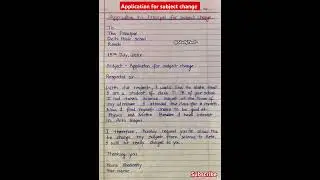 Application for subject change
Application to Principal for subject change
To
The Principal
Delhi Public School
Ranchi
Subject - Application for subject change.
Respected sir,
With due respect, I would like to state that
I am a student of class 11 B of your school.
I had chosen Science subject at the time of
my admission. I attended the class for a month.
Now I find myself unable to be good at
Physics and Maths. Besides I have interest
in Arts
I therefore, humbly request you to allow me
to change my subject from Science to Arts. I
will be really obliged to you.
Thanking you
Yours obediently
Your name
Subscribe